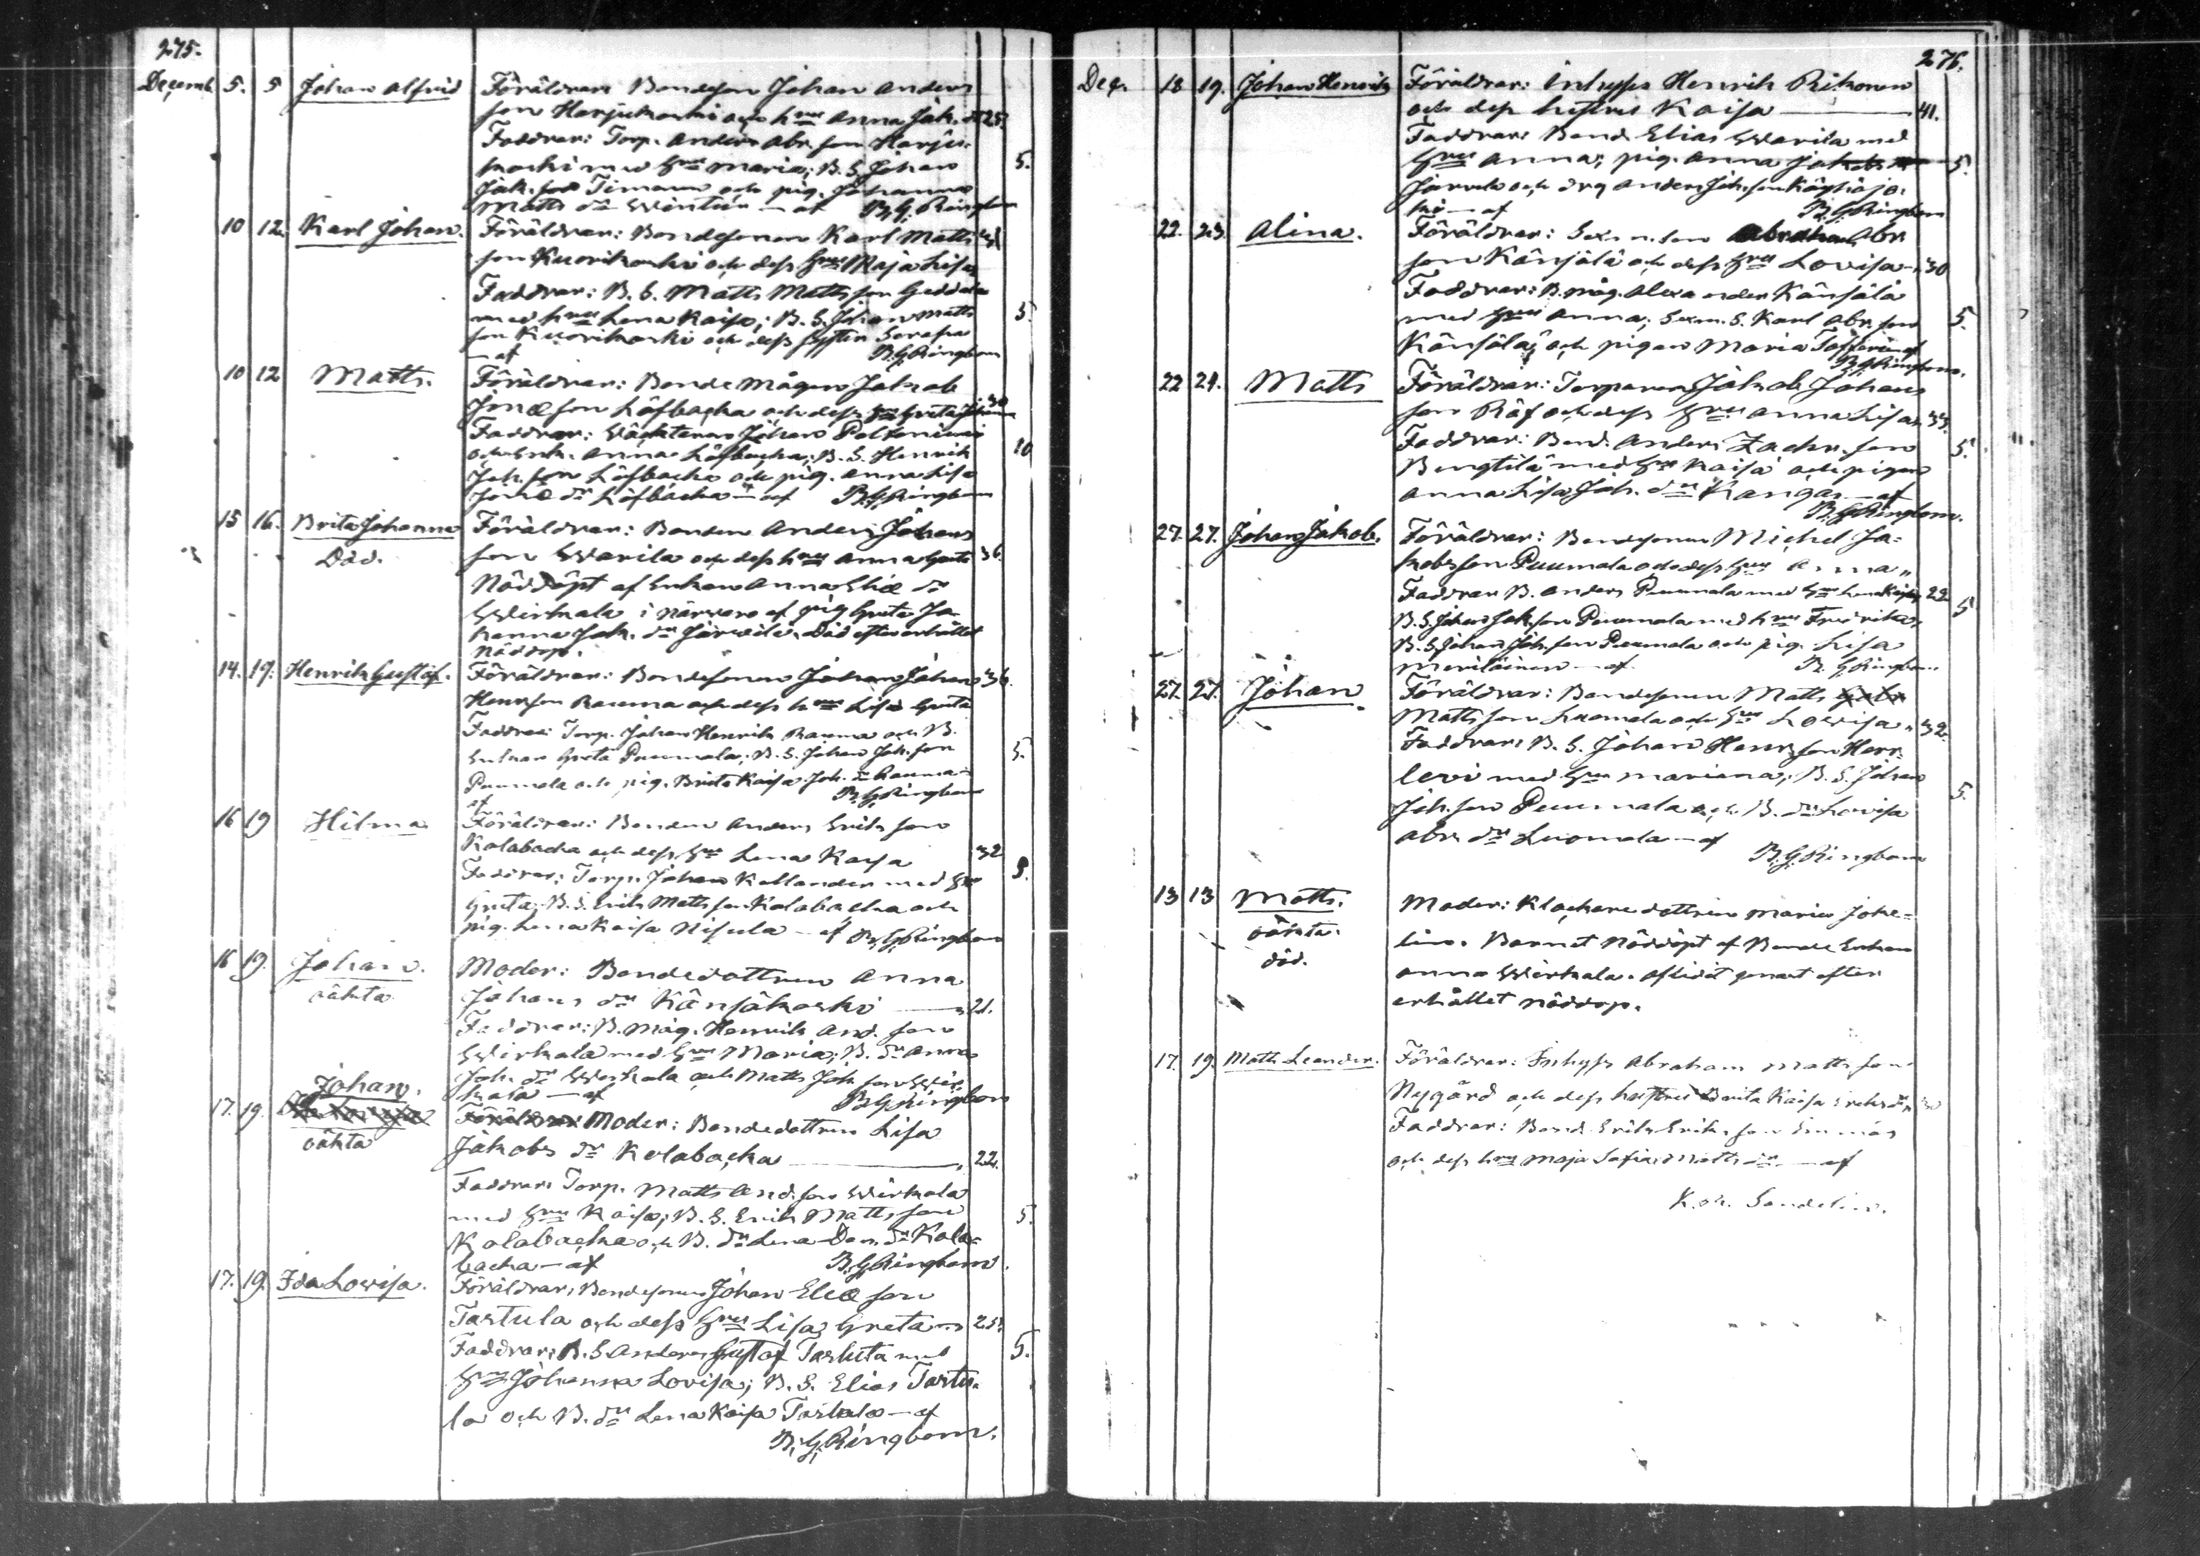 275.
Decemb. 5. 5 Johan Alfrid Föräldrar: Bondeson Johan Anders
son Harjukoski och hru Anna Joh. dr 25.
Faddrar: Torp. Anders Abr. son Harju-
koski med hru Maria; B. S. Johan 5.
Jak. son Timann och pig. Johanna
Matts dr Wintur — af B. G. Ringbom
10 12. Karl Johan. Föräldrar: Bondesonen Karl Matts
son Kuorikoski och dess hru Maja Lisa
Faddrar: B. S. Matts Matts son Geddala
med hru Lena Kaisa; B. S. Johan Matts 5.
son Kuorikoski och dess syster Serafia
— af B. G. Ringbom
10 12 Matts. Föräldrar: Bonde Mågen Jakob
Jonæ son Löfbacka och dess hru Greta Johanna 30
Faddrar: Wäktaren Johan
och Enk. Anna Löfbacka; B. S. Henrik 10
Joh. son Löfbacka och pig. Anna Lisa
Jonæ dr Löfbacka — af B. G. Ringbom
15 16. Brita Johanna Föräldrar: Bonden Anders Johans
Död. son Warila och dess hru Anna Greta 36.
Nöddöpt af Enkan Anna Eliæ dr
Wirkala i närwaro af pig Greta Jo-
hanna Joh. dr Järwilä. Död efter erhållet
nöddop.
14. 19. Henrik Gustaf. Föräldrar: Bondesonen Johan Johan 36.
Henr. son Rauma och dess hru Lisa Greta
Faddrar: Torp. Johan Henrik Rauma och B.
Enkan Greta Puumala; B. S. Johan Joh. son 5.
Puumala och pig. Brita Kaisa Joh. dr Rauma —
af B. G. Ringbom
16 19 Hilma Föräldrar: Bonden Anders Eriks son
Kolabacka och dess hru Lena Kaisa 32
Faddrar: Torp. Johan Kallander med hru
Greta; B. S. Erik Matts son Kolabacka och
pig. Lena Kaisa Nisula — af B. G. Ringbom
16 19. Johan. Moder: Bondedottren Anna
oäkta Johans dr Känsäkoski — 21.
Faddrar: B. Måg. Henrik And. son
Wirkala med hru Maria; B. dr Anna
Joh. dr Wirkala och Matts Joh. son Wir-
kala — af B. G. Ringbom
Johan.
17. 19. Föräldrar Moder: Bondedottren Lisa
oäkta Jakobs dr Kolabacka — 22.
Faddrar: Torp. Matts And. son Wirkala
med hru Kaisa; B. S. Erik Matts son 5.
Kolabacka och B. dr Lena Dan. dr Kola-
backa — af B. G. Ringbom.
17. 19. Ida Lovisa. Föräldrar: Bondesonen Johan Eliæ son
Tastula och dess hru Lisa Greta 25.
Faddrar: B. S. Anders Gustaf Tastula med 5.
hru Johanna Lovisa; B. S. Elias Tastu-
la och B. dr Lena Kaisa Tastula — af
B. G. Ringbom.
276.
Dec. 18 19. Johan Henrik Föräldrar: Inhyses Henrik Rikonen
och dess hustru Kaisa — 41.
Faddrar: Bond. Elias Warila med
hru Anna; pig. Anna 5.
Järvelä och drg Anders Joh. son
— af B. G. Ringbom
22. 23. Alina. Föräldrar: Sexm. son Abraham Abr.
son Känsälä och dess hru Lovisa — 30
Faddrar: B. måg. Alexander Känsälä
med hru Anna; Sexm. S. Karl Abr. son 5.
Känsälä; och pigan Maria
B. G. Ringbom.
22 24. Matts Föräldrar: Torparen Jakob Johans
son Räf och dess hru Anna Lisa 33.
Faddrar: Bond. Anders Zachr. son 5.
Bengtilä med hru Kaisa och pigan
Anna Lisa Joh. dr Kangas — af
B. G. Ringbom.
27. 27. Johan Jakob. Föräldrar: Bondesonen Michel Ja-
kobsson Puumala och dess hru Anna „
Faddrar B. Anders Puumala med hru 22
B. S. Johan Jak. son Puumala med hru Fredrika; 5
B. S. Johan Joh. son Puumala och pig. Lisa
Meriläinen — af B. G. Ringbom
27. 27. Johan Föräldrar: Bondesonen Matts
Mattsson Luomala och hru Lovisa „ 32.
Faddrar: B. S. Johan Henr. son Herr-
levi med hru Mariana; B. S. Johan
Joh. son Puumala och B. dr Lovisa 5.
Abr. dr Luomala — af
B. G. Ringbom
13 13 Matts. Moder: Klockare dottren Maria Joke-
oäkta. lin. Barnet Nöddöpt af Bonde Enkan
död. Anna Wirkala. Aflidit genast efter
erhållet nöddop.
17. 19. Matts Leander. Föräldrar: Inhyses Abraham Matts son
Nygård och dess hustru Brita Kaisa Eriks dr
Faddrar: Bond. Erik Eriks son
och dess hru Maja Sofia Matts dr — af
Sandelin.